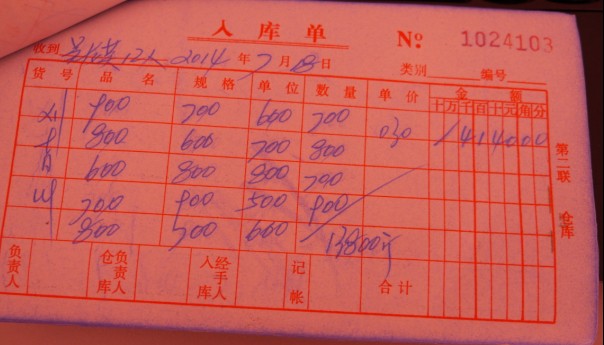 入库单
No: 1024103
收到 12人 2014年7月18日 类别 编号
货号 品名 规格 单位 数量 单价 金额
十万千百十元角分
900 700 600 700 030 1414000
800 600 700 800
600 800 800 700
700 900 500 900
800 500 600 13800斤
第二联 仓库
负责人 仓库负责人 入库经手人 记帐 合计